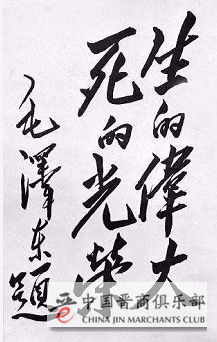 生的偉大
死的光榮
毛澤东題
中国晋商俱乐部
CHINA JIN MARCHANTS CLUB